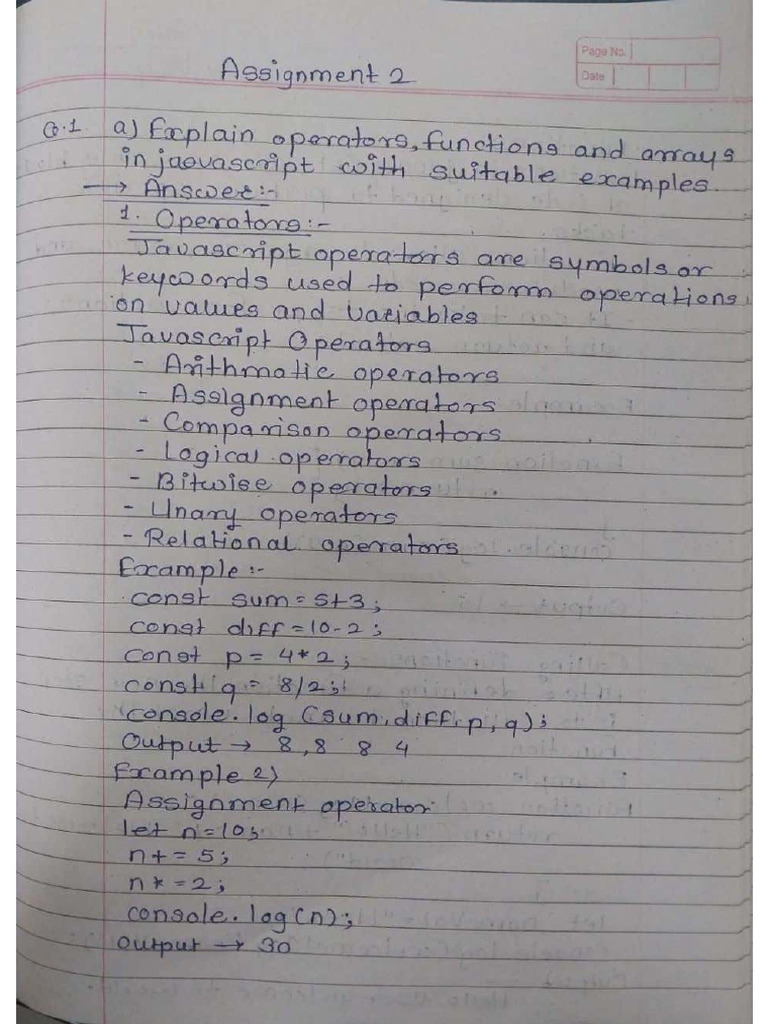 Assignment 2
Page No.
Date
Q.1 a) Explain operators, functions and arrays
in jaavascript with suitable examples.
→ Answer:-
1. Operators:-
Javascript operators are symbols or
keywords used to perform operations
on values and variables
Javascript Operators
- Arithmatic operators
- Assignment operators
- Comparison operators
- Logical operators
- Bitwise operators
- Unary operators
- Relational operators
Example:-
const sum = 5+3;
const diff = 10-2;
const p = 4*2;
const q = 8/2;
console.log (sum, diff, p, q);
Output → 8, 8 8 4
Example 2)
Assignment operator
let n=10;
n+=5;
n*=2;
console.log(n);
Output → 30